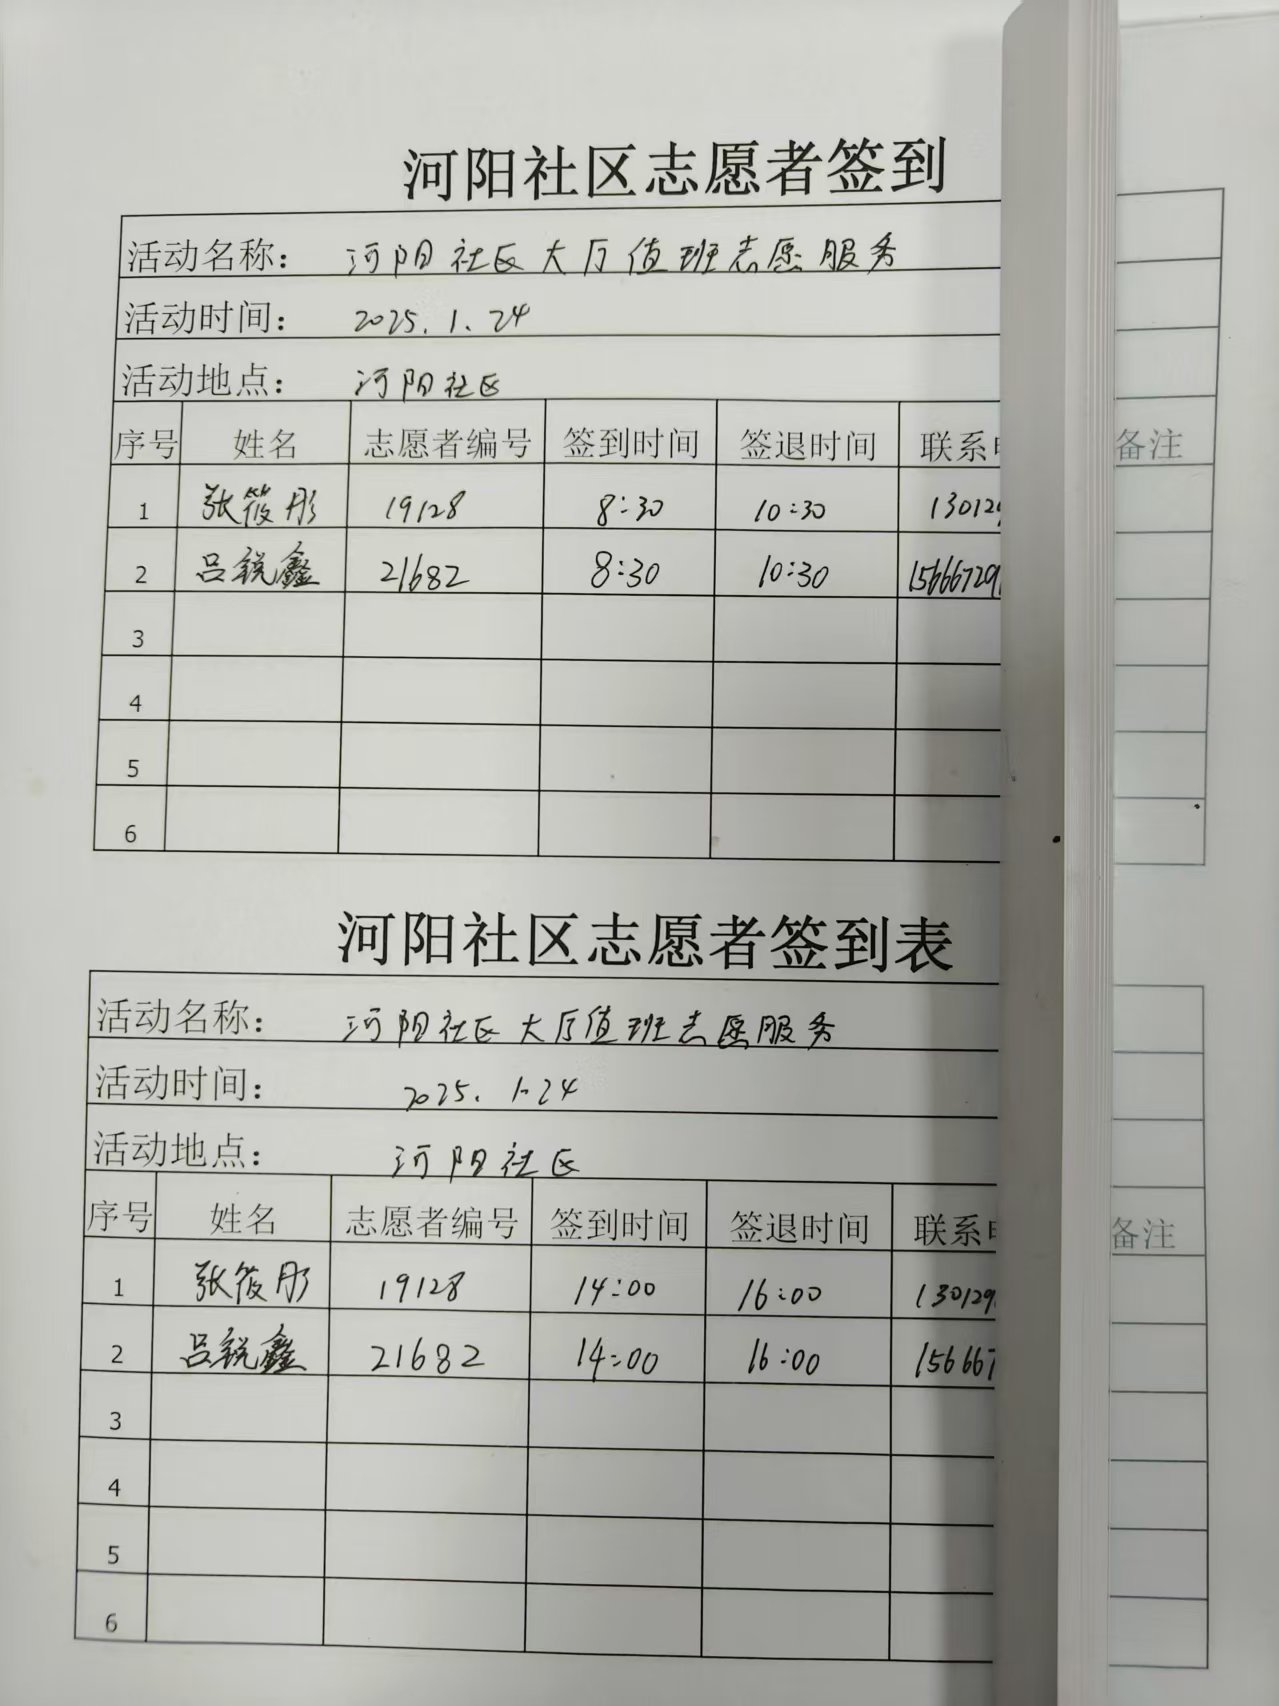 河阳社区志愿者签到
活动名称： 河阳社区大厅值班志愿服务
活动时间： 2025.1.24
活动地点： 河阳社区
序号 姓名 志愿者编号 签到时间 签退时间 联系 备注
1 张筱彤 19128 8:30 10:30 13012
2 吕锐鑫 21682 8:30 10:30 15666729
3
4
5
6
河阳社区志愿者签到表
活动名称： 河阳社区大厅值班志愿服务
活动时间： 2025.1.24
活动地点： 河阳社区
序号 姓名 志愿者编号 签到时间 签退时间 联系 备注
1 张筱彤 19128 14:00 16:00 130129
2 吕锐鑫 21682 14:00 16:00 156667
3
4
5
6